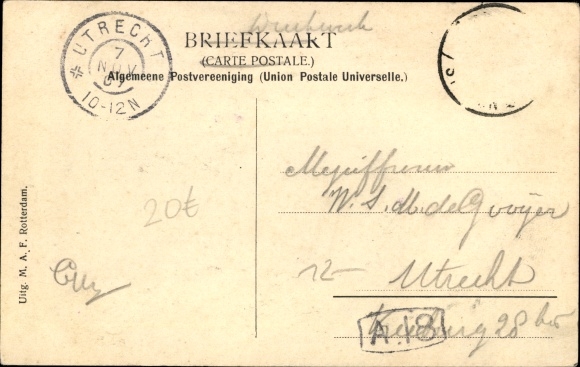 BRIEFKAART
(CARTE POSTALE.)
Algemeene Postvereeniging (Union Postale Universelle.)
UTRECHT
7
NOV
07
10-12N
Mejuffrouw
W. S. M. de Gooyer
12-
Utrecht
28 bis
A.18
20€
Uitg. M. A. F. Rotterdam.